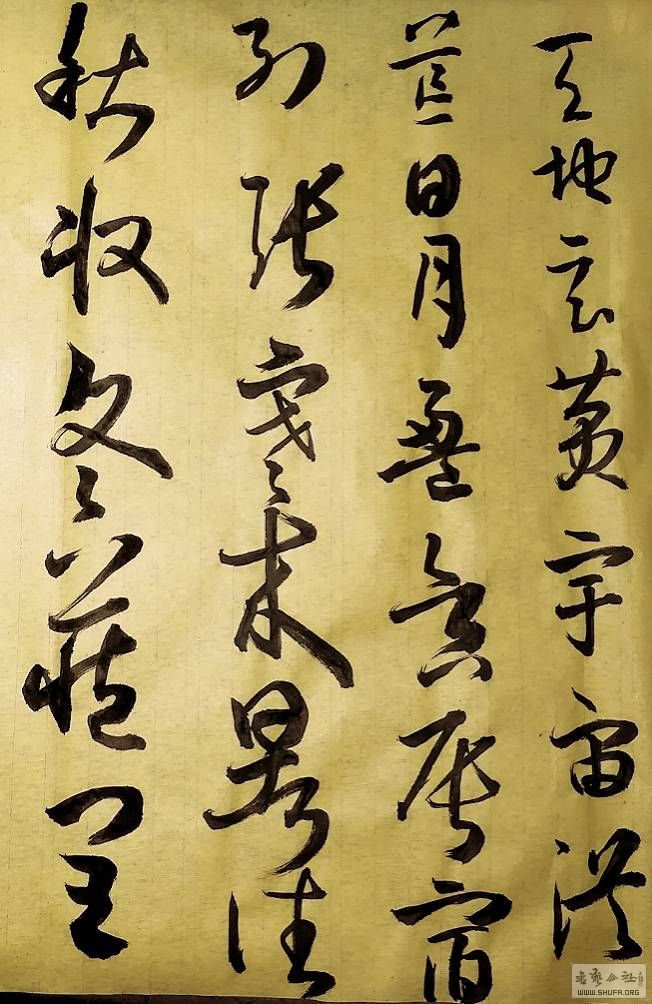 天地玄黄宇宙洪
荒日月盈昃辰宿
列张寒来暑往
秋收冬藏闰
书艺公社
WWW.SHUFA.ORG